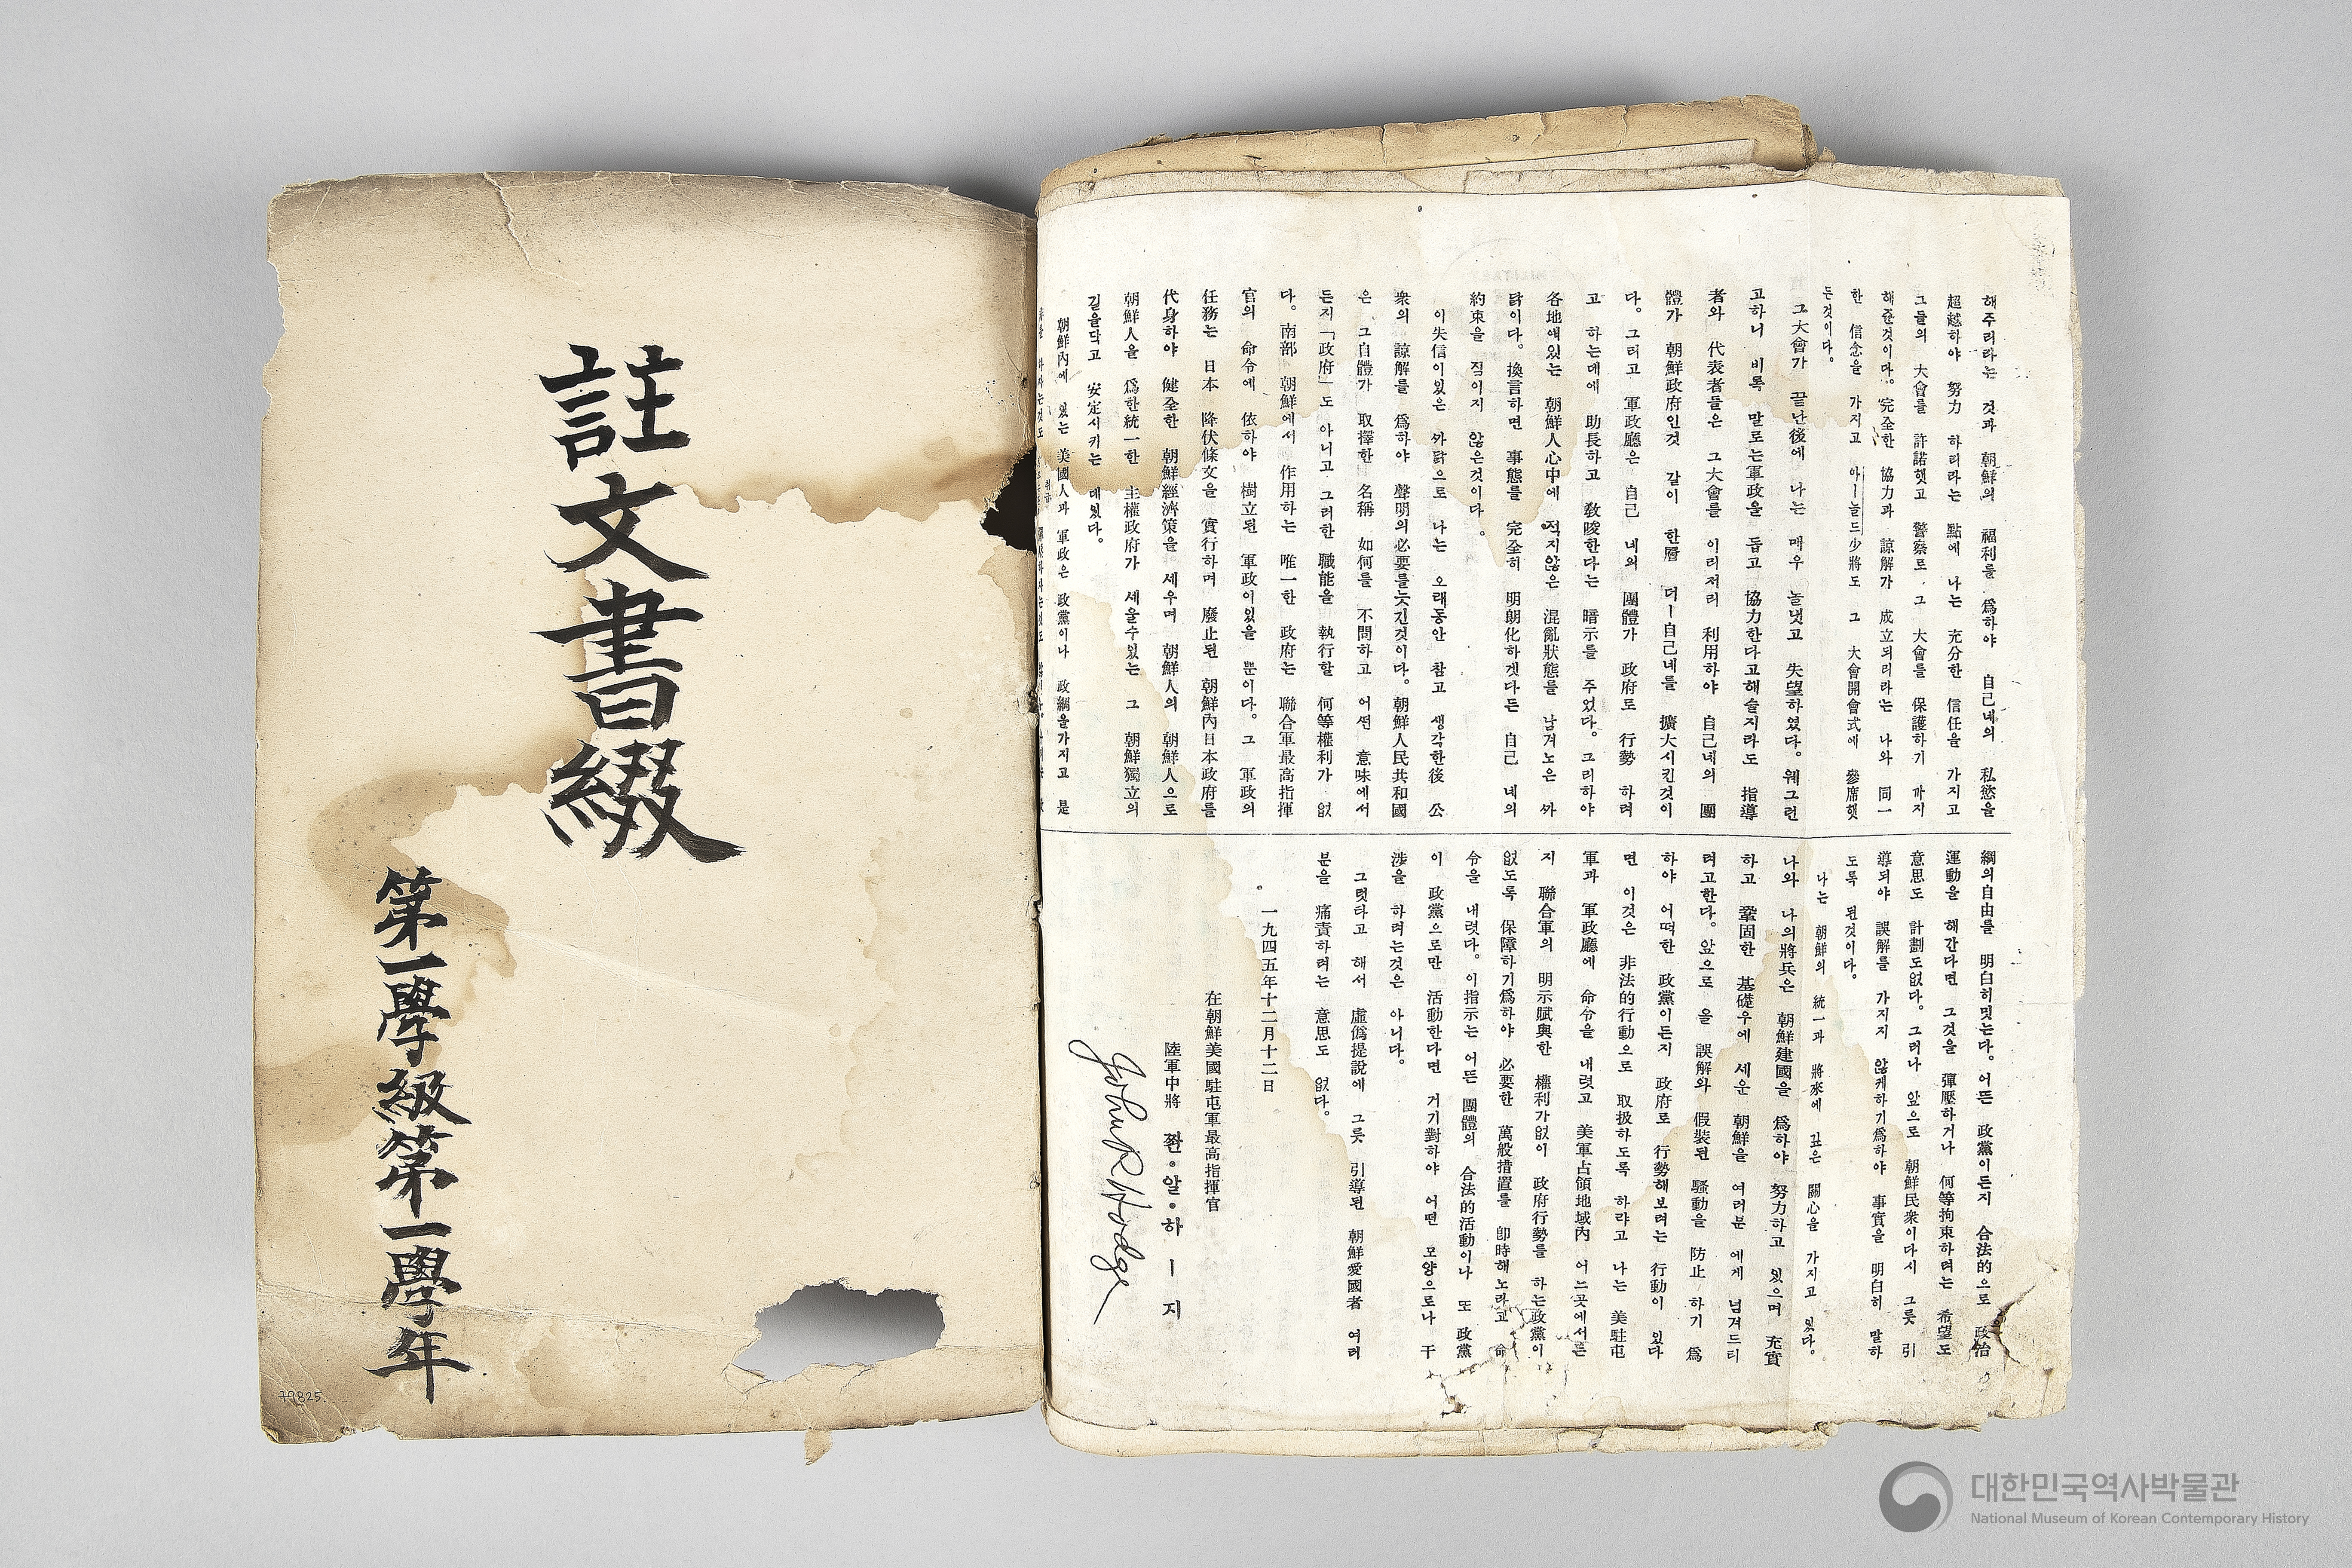 註文書綴
第一學級第一學年
79825.
해주리라는 것과 朝鮮의 福利를 爲하야 自己네의 私慾을
超越하야 努力 하리라는 點에 나는 充分한 信任을 가지고
그들의 大會를 許諾햇고 警察로 그 大會를 保護하기 까지
해준것이다. 完全한 協力과 諒解가 成立되리라는 나와 同一
한 信念을 가지고 아ー놀드少將도 그 大會開會式에 參席햇
든것이다.
그大會가 끝난後에 나는 매우 놀냇고 失望하였다. 웨그런
고하니 비록 말로는軍政을 돕고 協力한다고해슬지라도 指導
者와 代表者들은 그大會를 이리저리 利用하야 自己네의 團
體가 朝鮮政府인것 같이 한層 더ー自己네를 擴大시킨것이
다. 그러고 軍政廳은 自己 네의 團體가 政府로 行勢 하려
고 하는데에 助長하고 敎唆한다는 暗示를 주었다. 그리하야
各地에있는 朝鮮人心中에 적지않은 混亂狀態를 남겨노은 까
닭이다. 換言하면 事態를 完全히 明朗化하겟다든 自己 네의
約束을 직이지 않은것이다.
이失信이있은 까닭으로 나는 오래동안 참고 생각한後 公
衆의 諒解를 爲하야 聲明의必要를늣긴것이다. 朝鮮人民共和國
은 그自體가 取擇한 名稱 如何를 不問하고 어떤 意味에서
든지「政府」도 아니고 그러한 職能을 執行할 何等權利가 없
다. 南部 朝鮮에서 作用하는 唯一한 政府는 聯合軍最高指揮
官의 命令에 依하야 樹立된 軍政이있을 뿐이다. 그 軍政의
任務는 日本 降伏條文을 實行하며 廢止된 朝鮮內日本政府를
代身하야 健全한 朝鮮經濟策을 세우며 朝鮮人의 朝鮮人으로
朝鮮人을 爲한統一한 主權政府가 세울수있는 그 朝鮮獨立의
길을닥고 安定시키는 데잇다.
朝鮮內에 있는 美國人과 軍政은 政黨이나 政綱을가지고 是
綱의自由를 明白히밋는다. 어뜬 政黨이든지 合法的으로 政治
運動을 해간다면 그것을 彈壓하거나 何等拘束하려는 希望도
意思도 計劃도없다. 그러나 앞으로 朝鮮民衆이다시 그릇 引
導되야 誤解를 가지지 않게하기爲하야 事實을 明白히 말하
도록 된것이다.
나는 朝鮮의 統一과 將來에 깊은 關心을 가지고 있다.
나와 나의將兵은 朝鮮建國을 爲하야 努力하고 있으며 充實
하고 鞏固한 基礎우에 세운 朝鮮을 여러분 에게 넘겨드리
려고한다. 앞으로 올 誤解와 假裝된 騷動을 防止 하기 爲
하야 어떠한 政黨이든지 政府로 行勢해보려는 行動이 있다
면 이것은 非法的行動으로 取扱하도록 하라고 나는 美駐屯
軍과 軍政廳에 命令을 내렷고 美軍占領地域內 어느곳에서든
지 聯合軍의 明示賦與한 權利가없이 政府行勢를 하는政黨이
없도록 保障하기爲하야 必要한 萬般措置를 卽時해노라고 命
令을 내렷다. 이指示는 어뜬 團體의 合法的活動이나 또 政黨
이 政黨으로만 活動한다면 거기對하야 어떤 모양으로나 干
涉을 하려는것은 아니다.
그럿타고 해서 虛僞提說에 그릇 引導된 朝鮮愛國者 여러
분을 痛責하려는 意思도 없다.
一九四五年十二月十二日
在朝鮮美國駐屯軍最高指揮官
陸軍中將 쫜・알・하ー지
John R Hodge
대한민국역사박물관
National Museum of Korean Contemporary History